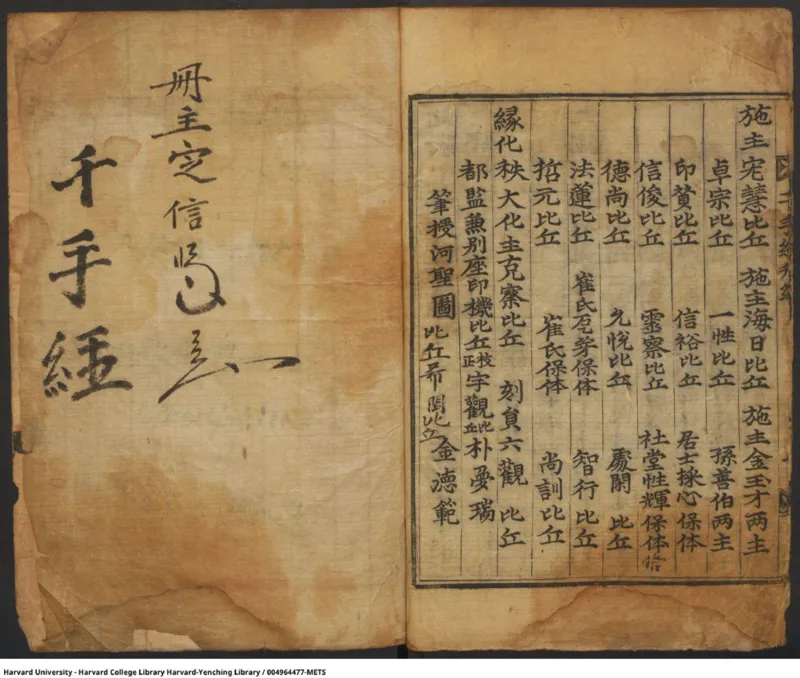 施主定慧比丘 施主海日比丘 施主金玉才两主
卓宗比丘 一性比丘 孫善伯两主
印賛比丘 信裕比丘 居士採心保体
信俊比丘 靈察比丘 社堂性輝保体
德尚比丘 允悅比丘 處閑比丘
法蓮比丘 崔氏芿芽保体 智行比丘
哲元比丘 崔氏保体 尚訓比丘
緣化秩 大化主克察比丘 刻員六觀比丘
都監兼別座印機比丘 校正宇觀比丘 朴夢瑞
筆授河聖圖 比丘希誾比丘 金德範
冊主定信
千手経
Harvard University - Harvard College Library Harvard-Yenching Library / 004964477-METS